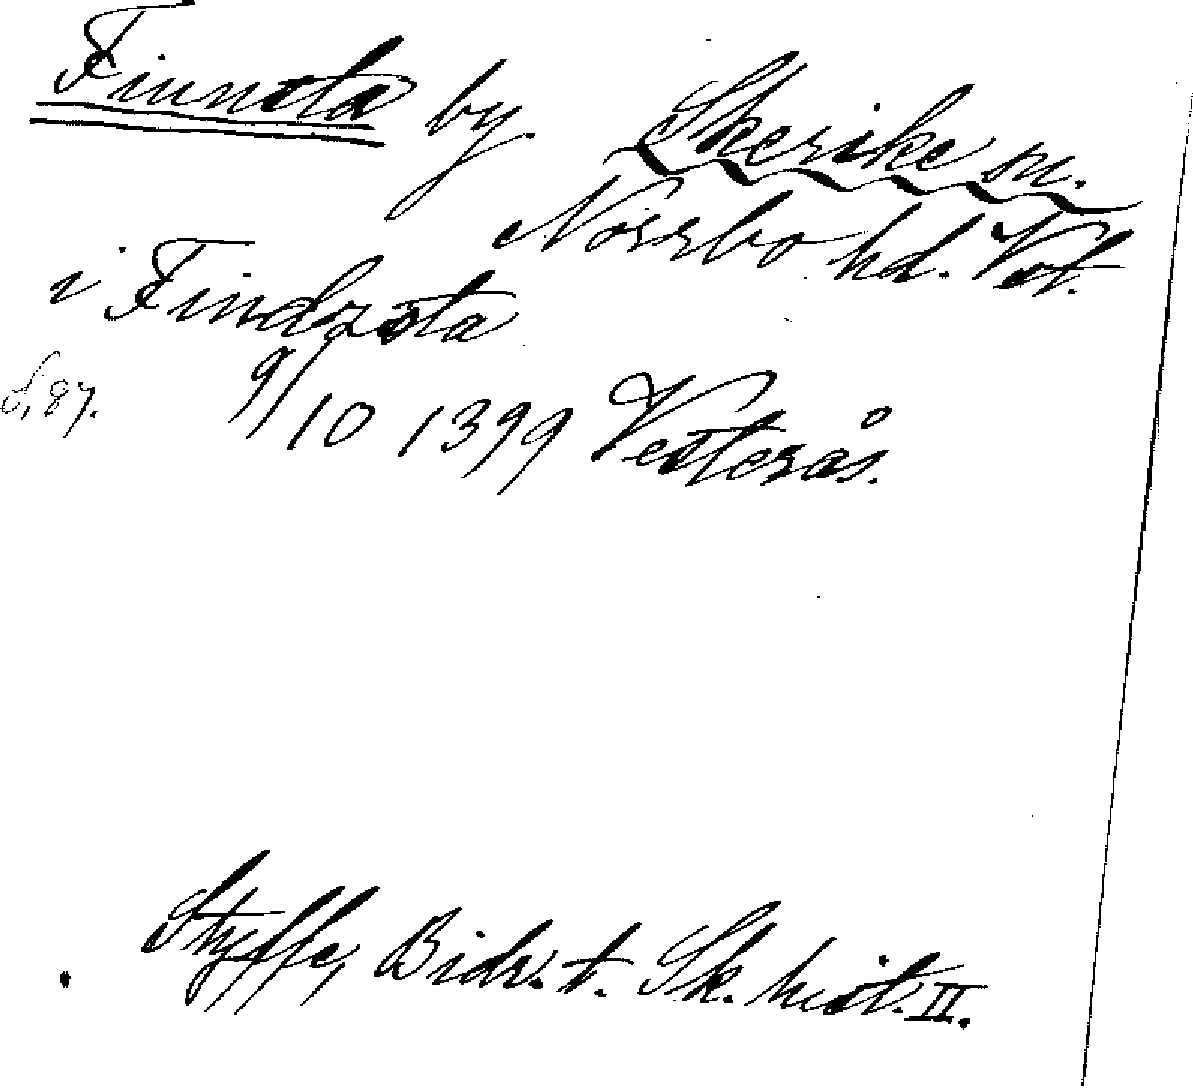 Finnsta by. Skerike sn.
Norrbo hd. Vst.
i Findzsta
S. 87. 9/10 1399 Vesterås.
Styffe, Bidr. t. Sk. hist. II.